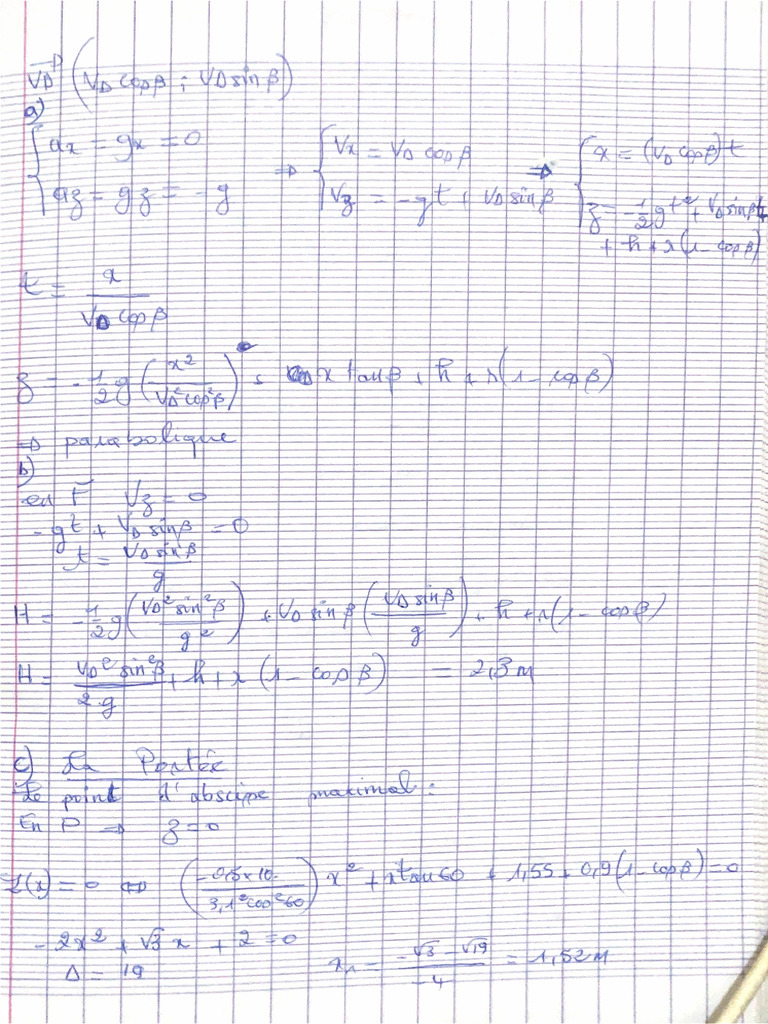 V⃗D (VD cosβ ; VD sinβ)
a)
{ ax = gx = 0 ⇒ { Vx = VD cosβ ⇒ { x = (VD cosβ)t
az = gz = -g Vz = -gt + VD sinβ z = -1/2 gt² + VD sinβ t
+ h + r(1 - cosβ)
t = x / (VD cosβ)
z = -1/2 g (x² / (VD² cos²β)) + x tanβ + h + r(1 - cosβ)
⇒ parabolique
b)
en F Vz = 0
-gt + VD sinβ = 0
t = VD sinβ / g
H = -1/2 g (VD² sin²β / g²) + VD sinβ (VD sinβ / g) + h + r(1 - cosβ)
H = VD² sin²β / 2.g + h + r (1 - cosβ) = 2,3 m
c) La Portée
Le point d'abscisse maximal :
En P → z = 0
Z(x) = 0 ⇔ (-0,5×10 / 3,1² cos²60) x² + x tan60 + 1,55 + 0,9(1 - cosβ) = 0
-2x² + √3 x + 2 = 0
Δ = 19 x₁ = (-√3 - √19) / -4 = 1,52 m